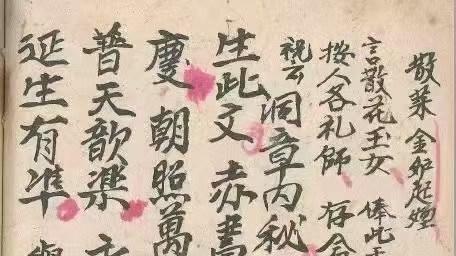 散菜金如起煙
言散花玉女 俸此
按人各礼師 存
祝云 洞章内秘
生此文 赤書
慶 朝照萬
普天歆樂
延生有準